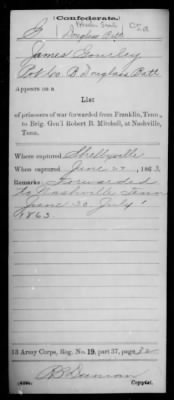 (Confederate.)
G Douglass Batt
James Gourley
Pvt Co. B. Douglass Batt
Appears on a
List
of prisoners of war forwarded from Franklin, Tenn.,
to Brig. Gen'l Robert B. Mitchell, at Nashville,
Tenn.
Where captured Shelbyville
When captured June 27, 1863
Remarks Forwarded
to Nashville Tenn
June 30 July 1
1863
13 Army Corps, Reg. No. 19, part 37, page
Copyist.